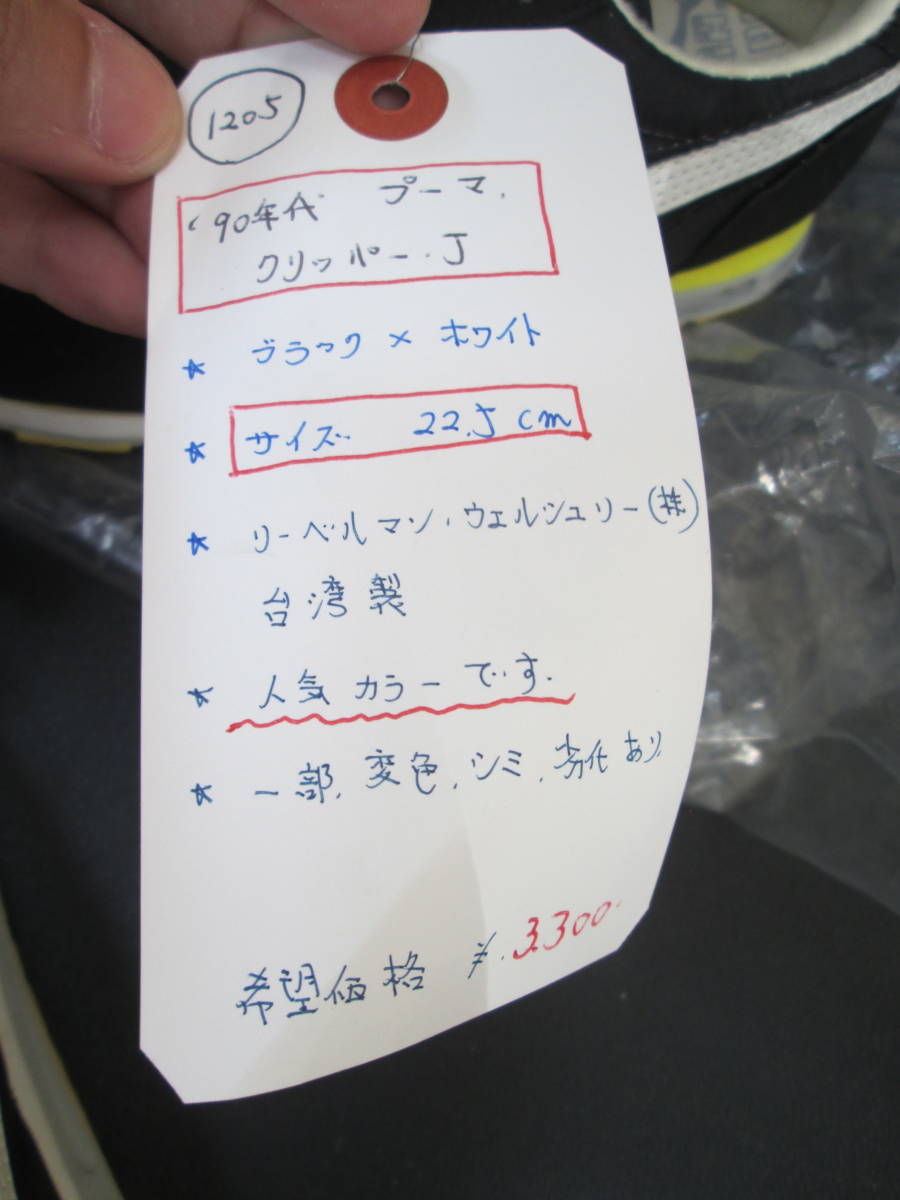 1205
'90年代 プーマ.
クリッパー.J
★ ブラック × ホワイト
★ サイズ 22.5 cm
★ リーベルマン・ウェルシュリー(株)
台湾製
★ 人気カラーです.
★ 一部, 変色, シミ, 劣化あり
希望価格 ¥.3300.